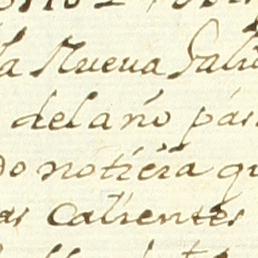 la Nueua Gali
del año pas
do noticia qu
as calientes